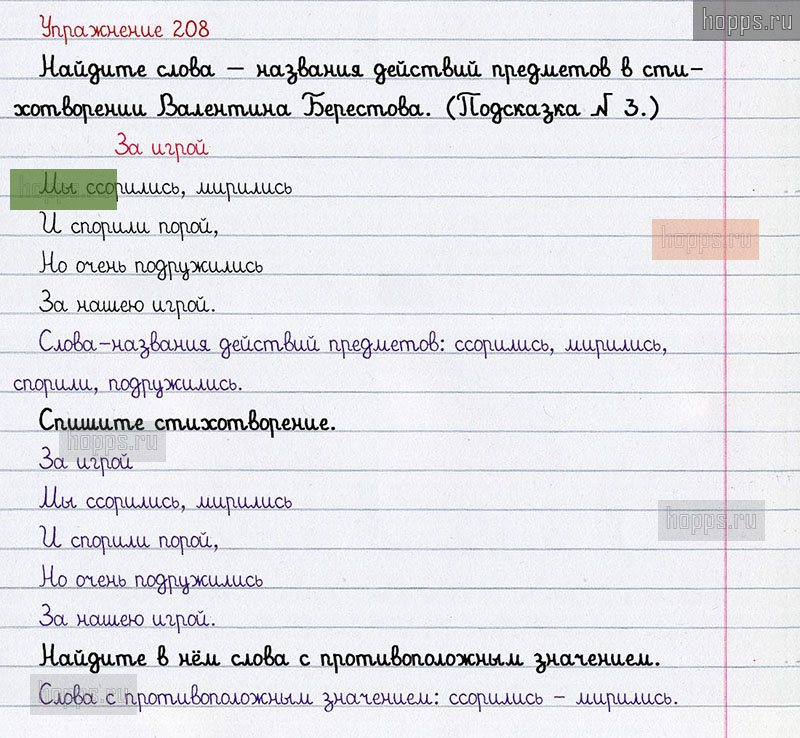 hopps.ru
Упражнение 208
Найдите слова – названия действий предметов в сти-
хотворении Валентина Берестова. (Подсказка № 3.)
За игрой
Мы ссорились, мирились
И спорили порой,
hopps.ru
Но очень подружились
За нашею игрой.
Слова-названия действий предметов: ссорились, мирились,
спорили, подружились.
Спишите стихотворение.
hopps.ru
За игрой
Мы ссорились, мирились
hopps.ru
И спорили порой,
Но очень подружились
За нашею игрой.
Найдите в нём слова с противоположным значением.
Слова с противоположным значением: ссорились – мирились.
hopps.ru